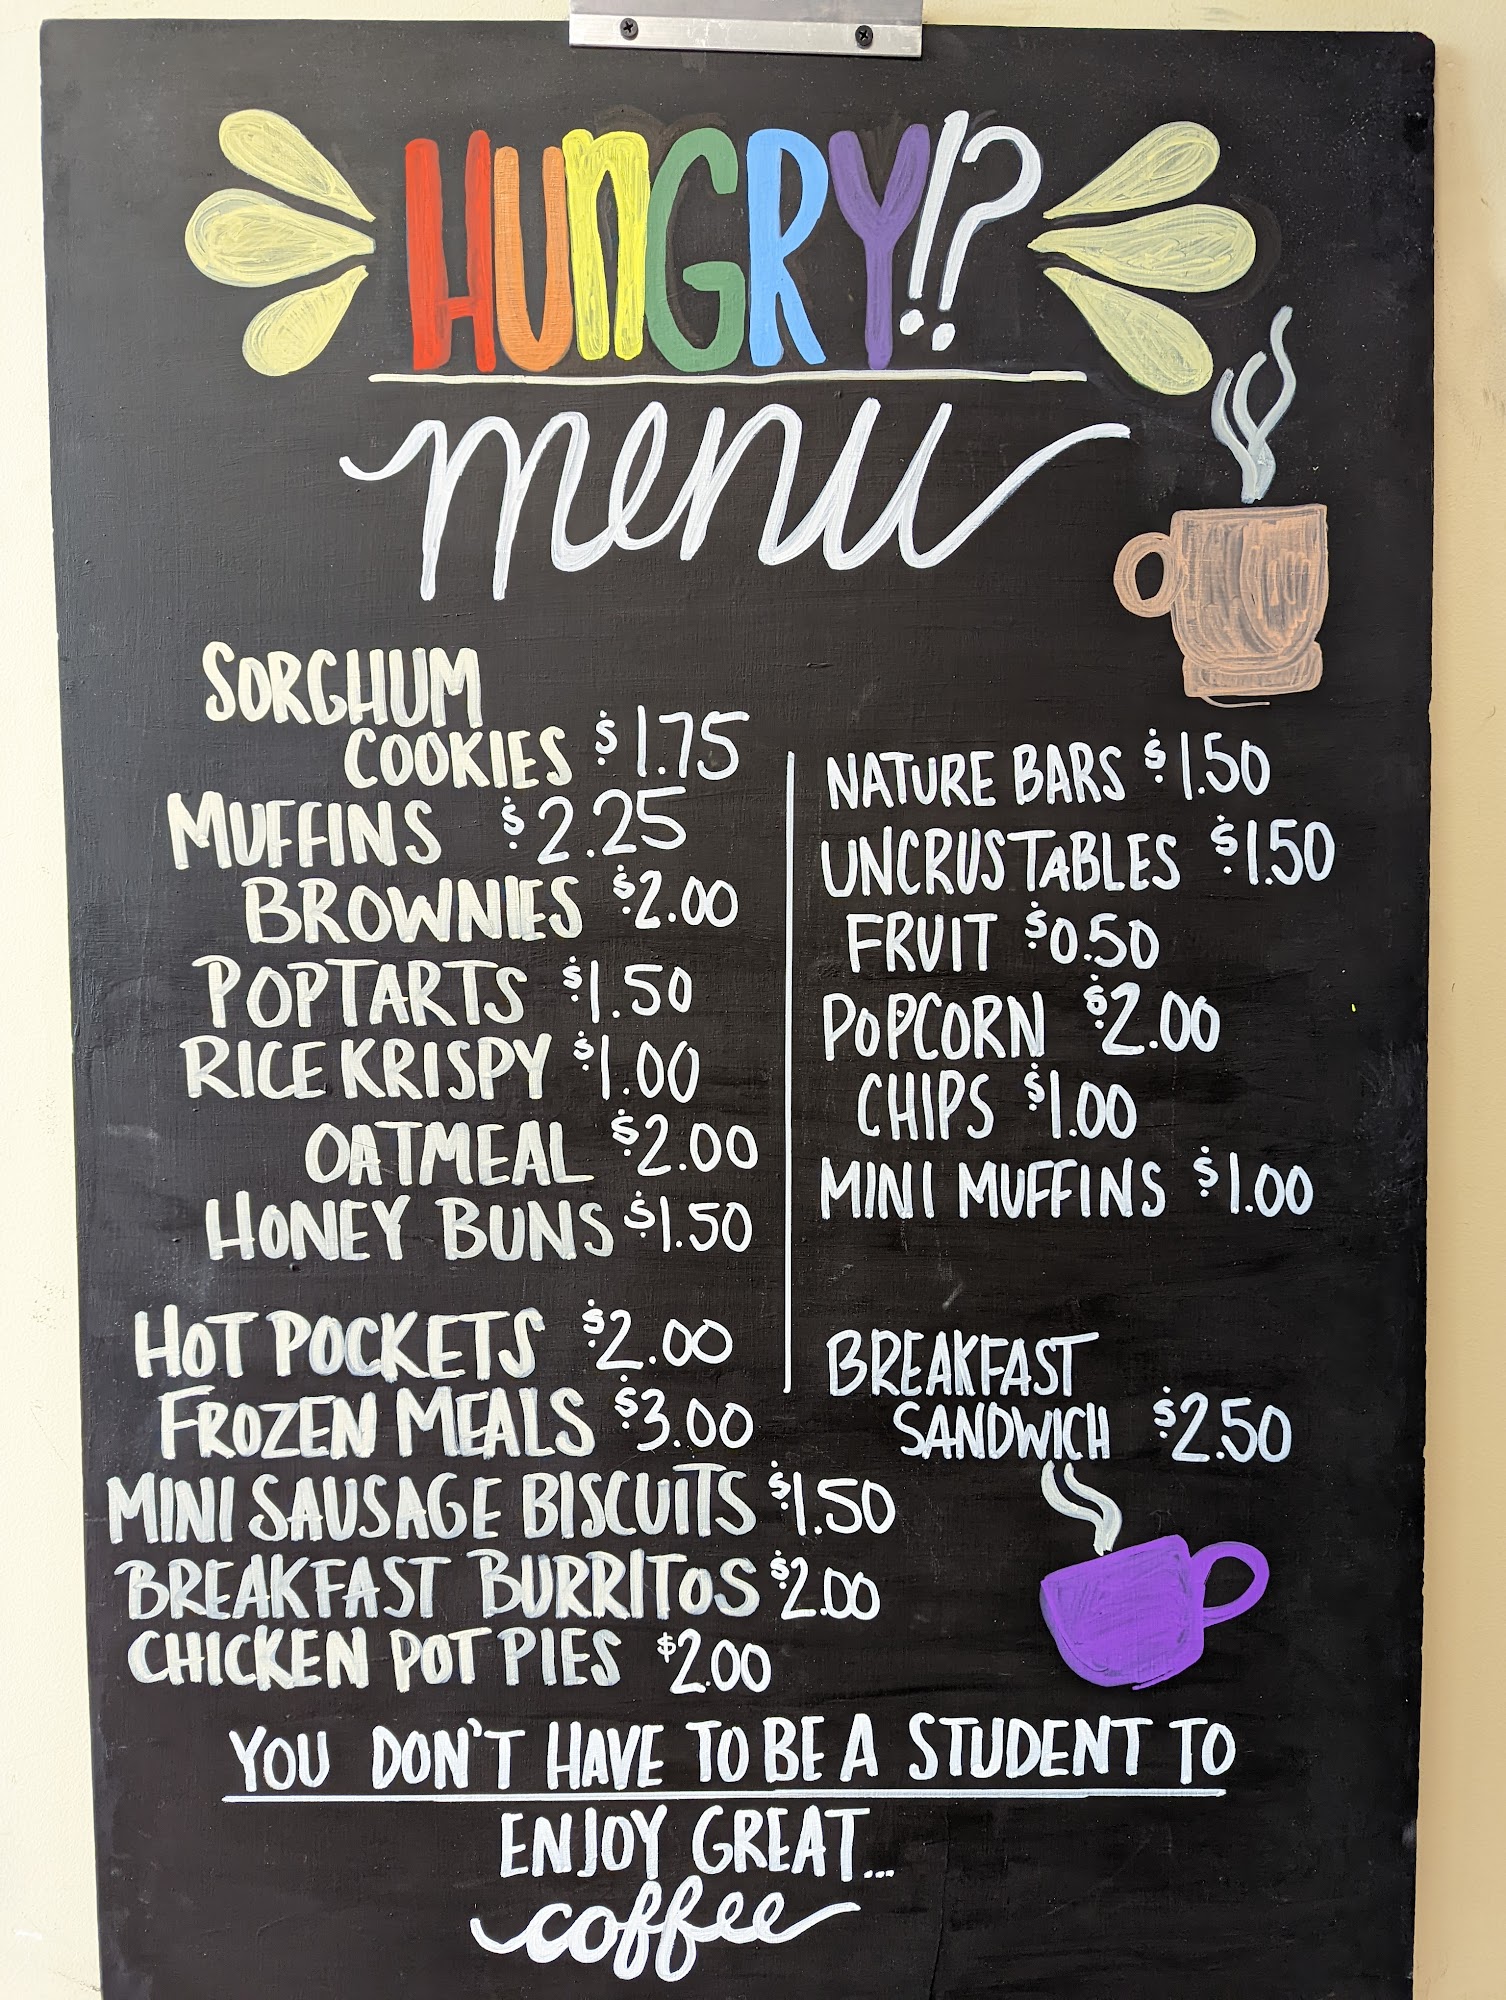 HUNGRY!?
menu
SORGHUM
COOKIES $1.75
MUFFINS $2.25
BROWNIES $2.00
POPTARTS $1.50
RICE KRISPY $1.00
OATMEAL $2.00
HONEY BUNS $1.50
HOT POCKETS $2.00
FROZEN MEALS $3.00
MINI SAUSAGE BISCUITS $1.50
BREAKFAST BURRITOS $2.00
CHICKEN POT PIES $2.00
NATURE BARS $1.50
UNCRUSTABLES $1.50
FRUIT $0.50
POPCORN $2.00
CHIPS $1.00
MINI MUFFINS $1.00
BREAKFAST
SANDWICH $2.50
YOU DON'T HAVE TO BE A STUDENT TO
ENJOY GREAT...
coffee